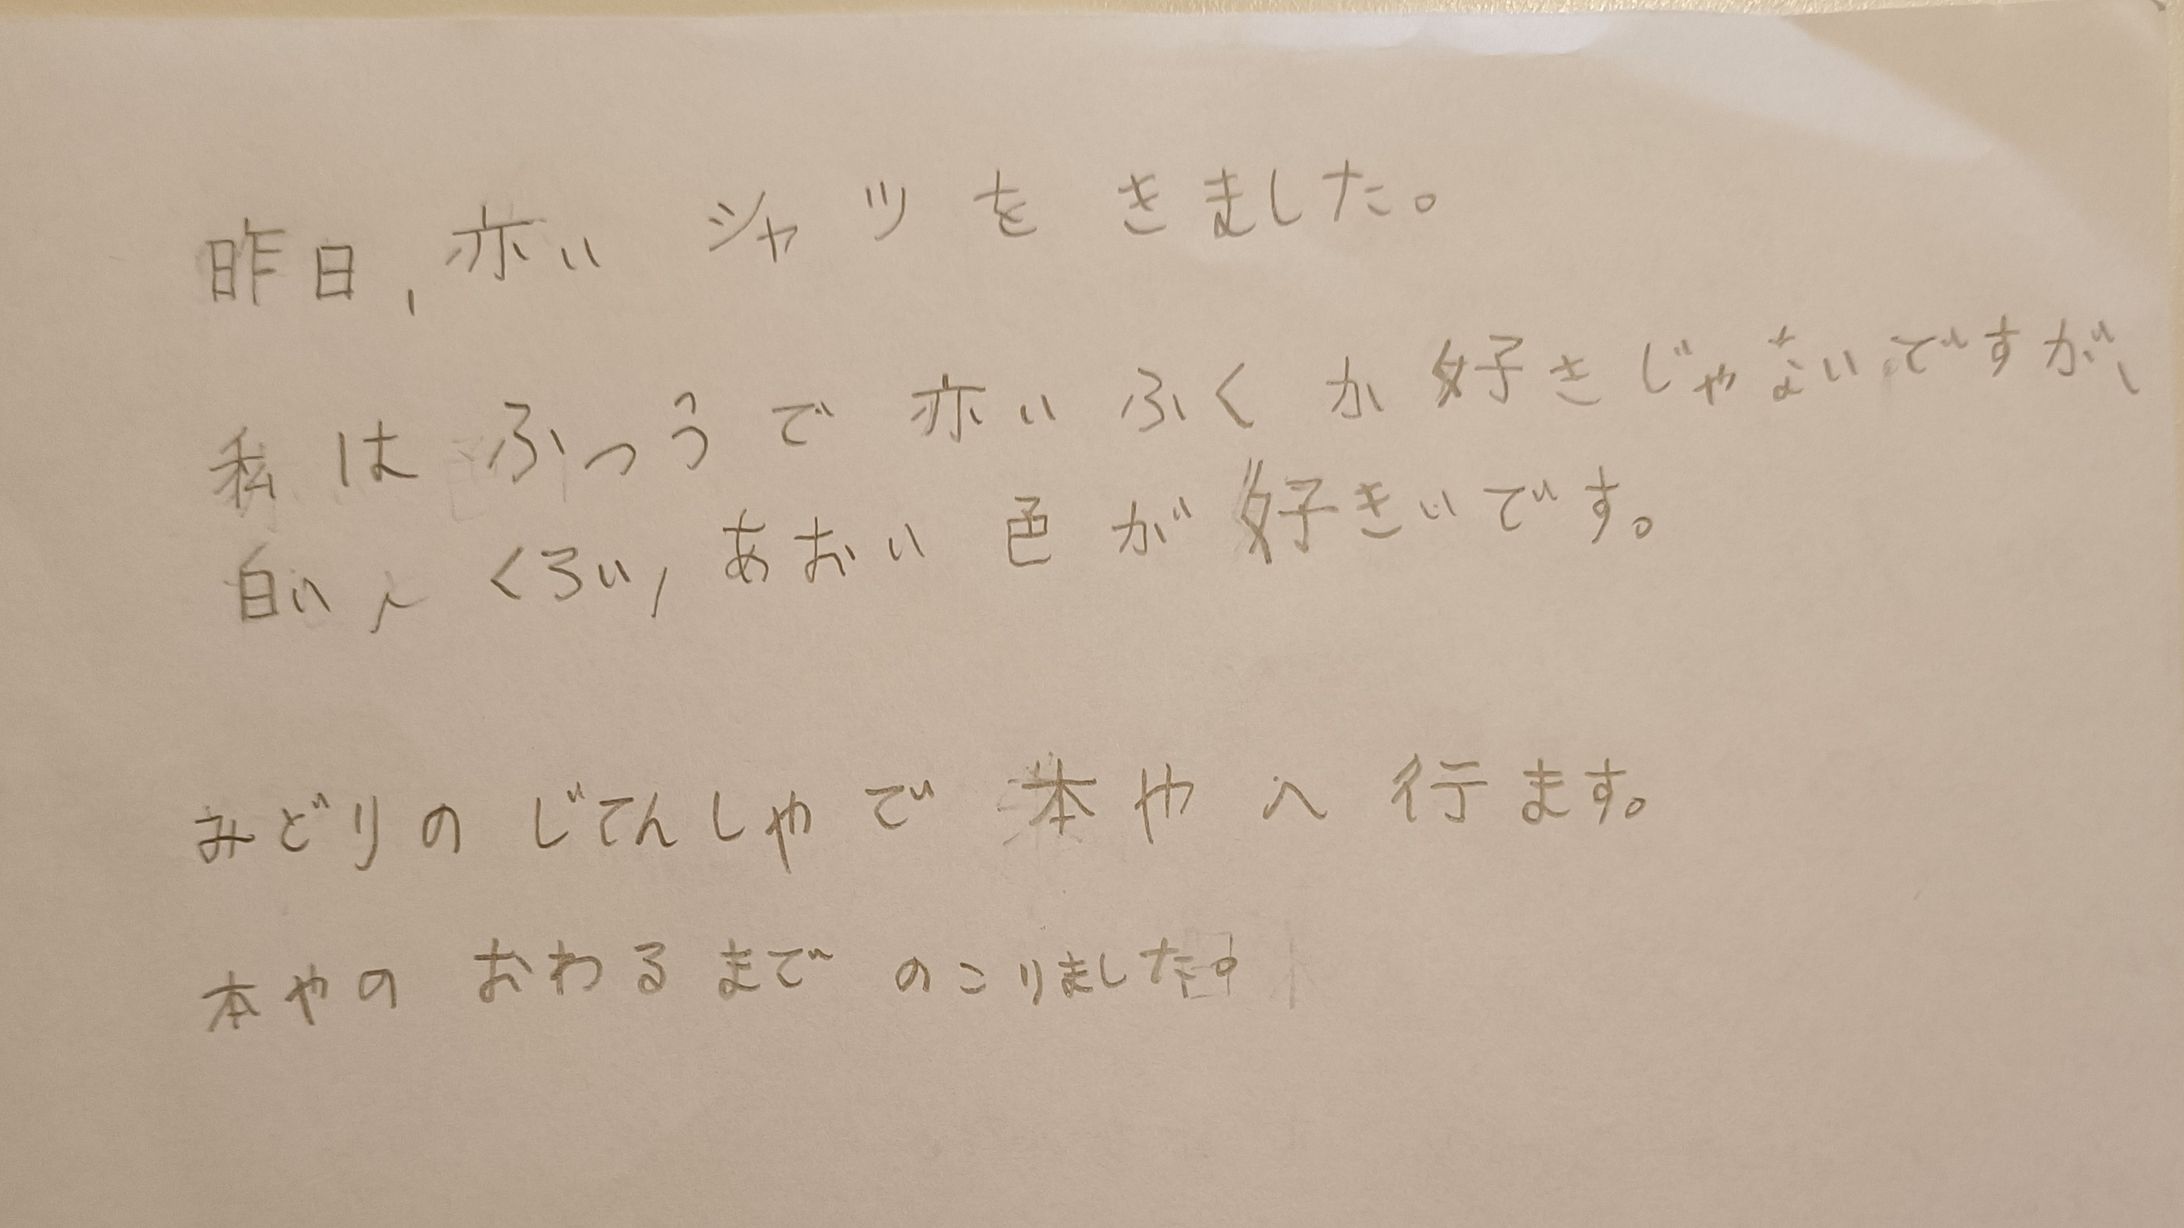 昨日,赤いシャツをきました。
私はふつうで赤いふくか好きじゃないですが、
白い、くろい,あおい色が好きいです。
みどりのじてんしゃで本やへ行ます。
本やのおわるまでのこりました。